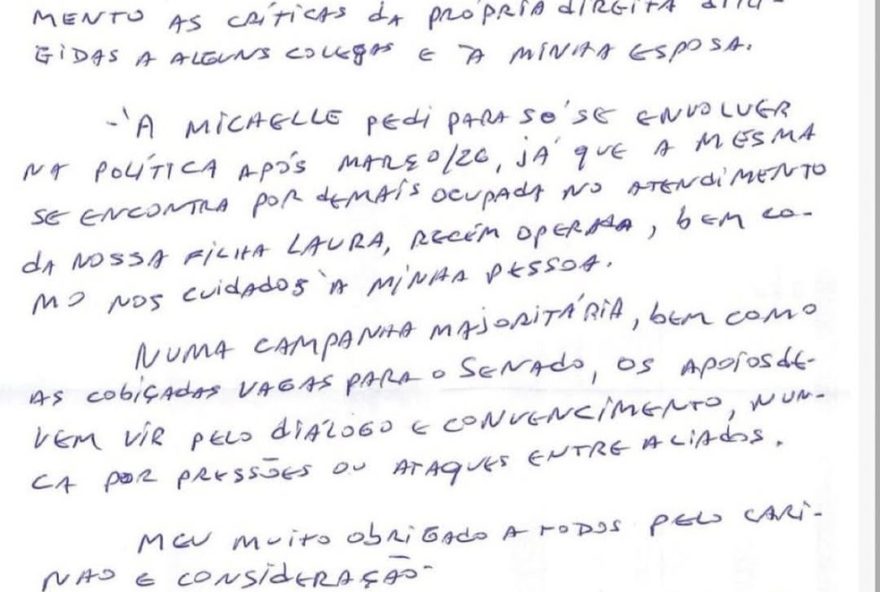 MENTO AS CRÍTICAS DA PRÓPRIA DIREITA DIRI-
GIDAS A ALGUNS COLEGAS E À MINHA ESPOSA.
- À MICHELLE PEDI PARA SÓ SE ENVOLVER
NA POLÍTICA APÓS MARÇO/26, JÁ QUE A MESMA
SE ENCONTRA POR DEMAIS OCUPADA NO ATENDIMENTO
DA NOSSA FILHA LAURA, RECÉM OPERADA, BEM CO-
MO NOS CUIDADOS À MINHA PESSOA.
NUMA CAMPANHA MAJORITÁRIA, BEM COMO
AS COBIÇADAS VAGAS PARA O SENADO, OS APOIOS DE-
VEM VIR PELO DIÁLOGO E CONVENCIMENTO, NUN-
CA POR PRESSÕES OU ATAQUES ENTRE ALIADOS.
MEU MUITO OBRIGADO A TODOS PELO CARI-
NHO E CONSIDERAÇÃO-